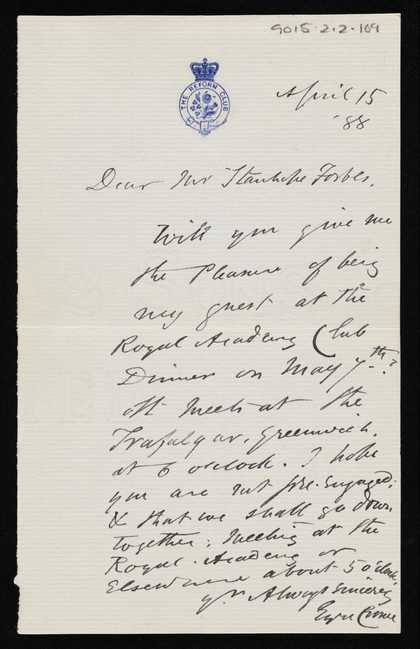 9015-2-2-109
THE REFORM CLUB
April 15
'88
Dear Mr Stanhope Forbes,
Will you give me
the Pleasure of being
my guest at the
Royal Academy Club
Dinner on May 7th?
It meets at the
Trafalgar, Greenwich,
at 6 o'clock. I hope
you are not pre-engaged:
& that we shall go down
together: meeting at the
Royal Academy or
Elsewhere about 5 o'clock.
yrs Always sincerely
Eyre Crowe